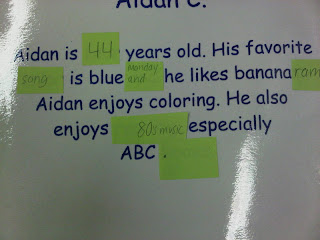 Aidan C.
Aidan is 44 years old. His favorite
song is blue Monday and he likes banana ram
Aidan enjoys coloring. He also
enjoys 80s music especially
ABC.